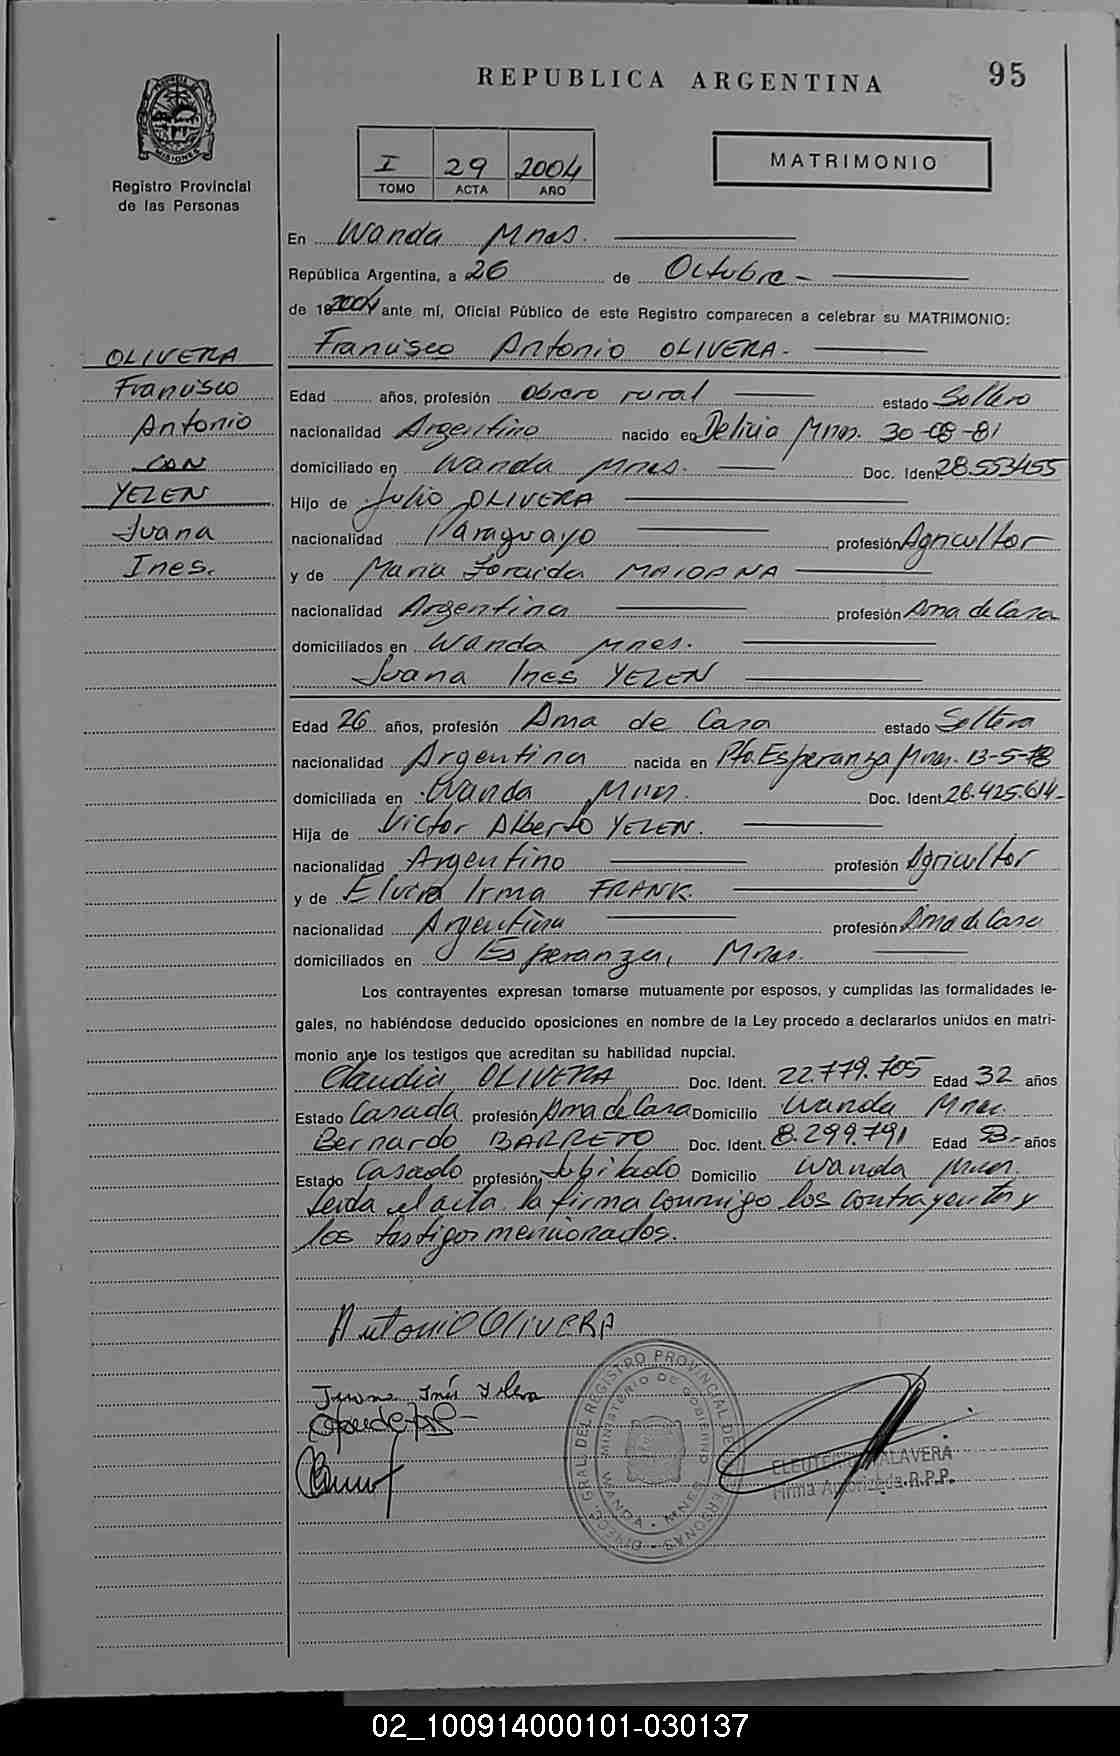 REPUBLICA ARGENTINA
95
PROVINCIA DE
MISIONES
Registro Provincial
de las Personas
I 29 2004
TOMO ACTA AÑO
MATRIMONIO
En Wanda Mnes.
República Argentina, a 26 de Octubre -
de 2004 ante mí, Oficial Público de este Registro comparecen a celebrar su MATRIMONIO:
Francisco Antonio OLIVERA.
OLIVERA
Francisco
Antonio
CON
YEZEN
Juana
Ines.
Edad años, profesión obrero rural estado Soltero
nacionalidad Argentino nacido en Delicia Mnes. 30-08-81
domiciliado en Wanda Mnes. Doc. Ident. 28.553.455
Hijo de Julio OLIVERA
nacionalidad Paraguayo profesión Agricultor
y de Maria Zoraida
nacionalidad Argentina profesión Ama de Casa
domiciliados en Wanda Mnes.
Juana Ines YEZEN
Edad 26 años, profesión Ama de Casa estado Soltera
nacionalidad Argentina nacida en Pto. Esperanza Mnes. 13-5-78
domiciliada en Wanda Mnes. Doc. Ident. 26.425.614-
Hija de Victor Alberto YEZEN.
nacionalidad Argentino profesión Agricultor
y de Elvira Irma FRANK.
nacionalidad Argentina profesión Ama de Casa
domiciliados en Esperanza, Mnes.
Los contrayentes expresan tomarse mutuamente por esposos, y cumplidas las formalidades le-
gales, no habiéndose deducido oposiciones en nombre de la Ley procedo a declararlos unidos en matri-
monio ante los testigos que acreditan su habilidad nupcial.
Claudia OLIVERA Doc. Ident. 22.779.705 Edad 32 años
Estado Casada profesión Ama de Casa Domicilio Wanda Mnes.
Bernardo BARRETO Doc. Ident. 8.299.791 Edad 53- años
Estado Casado profesión Jubilado Domicilio Wanda Mnes.
Leida el acta, la firma conmigo los contrayentes y
los testigos mencionados.
Antonio OLIVERA
Juana Inés Yezen
DIRECC. GRAL. DEL REGISTRO PROVINCIAL DE LAS PERSONAS
MINISTERIO DE GOBIERNO
WANDA - MNES
ELEUTERIO TALAVERA
Firma Autorizada R.P.P.
02_100914000101-030137